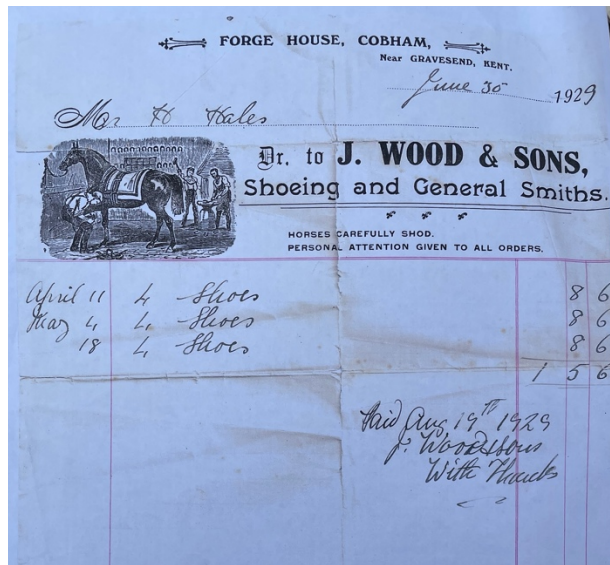 FORGE HOUSE, COBHAM,
Near GRAVESEND, KENT.
June 30 1929
Mr H Hales
Dr. to J. WOOD & SONS,
Shoeing and General Smiths.
HORSES CAREFULLY SHOD.
PERSONAL ATTENTION GIVEN TO ALL ORDERS.
April 11 4 Shoes 8 6
May 4 4 Shoes 8 6
18 4 Shoes 8 6
1 5 6
Paid Aug 19th 1929
J. Wood & Sons
With Thanks